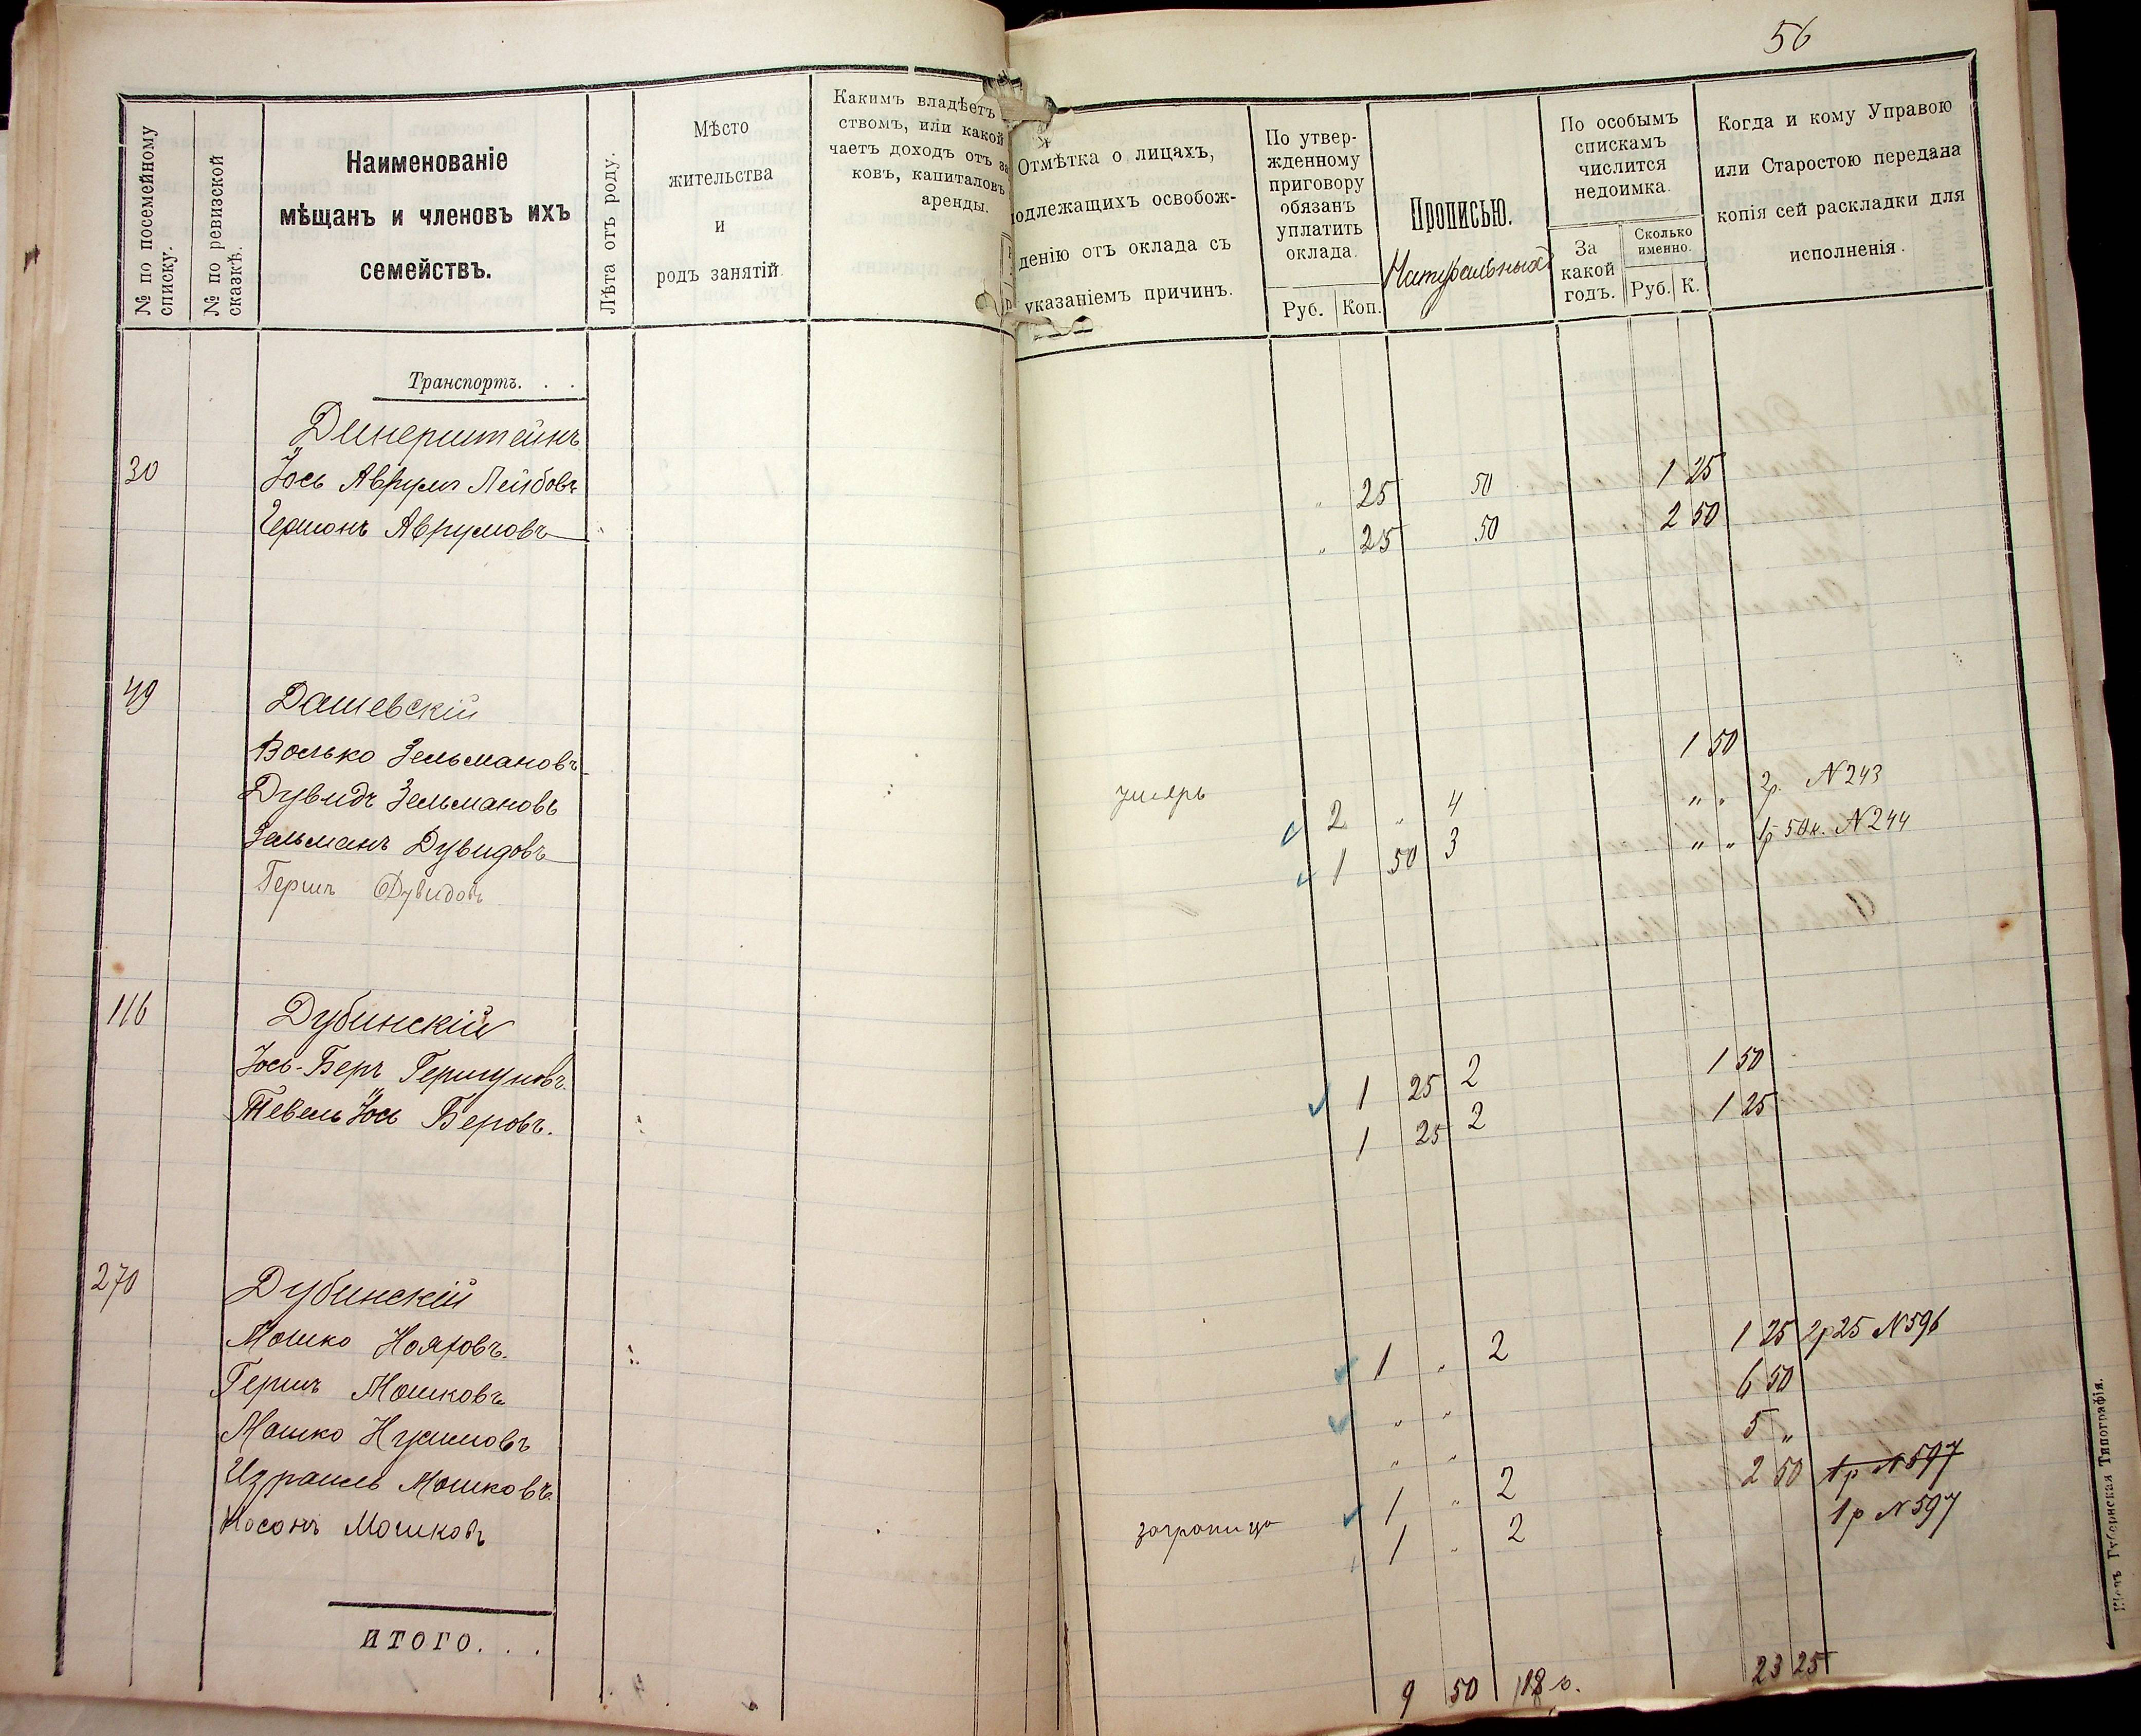 56
№ по посемейному списку.
№ по ревизской сказкѣ.
Наименованіе
мѣщанъ и членовъ ихъ
семействъ.
Лѣта отъ роду.
Мѣсто
жительства
и
родъ занятій.
Какимъ владѣетъ
ствомъ, или какой
чаетъ доходъ отъ за
ковъ, капиталовъ
аренды.
Отмѣтка о лицахъ,
подлежащихъ освобож-
денію отъ оклада съ
указаніемъ причинъ.
По утвер-
жденному
приговору
обязанъ
уплатить
оклада.
Руб. Коп.
Прописью.
Натуральных
По особымъ
спискамъ
числится
недоимка.
За
какой
годъ.
Сколько
именно.
Руб. К.
Когда и кому Управою
или Старостою передана
копія сей раскладки для
исполненія.
Транспортъ. . .
Динерштейнъ
30 Іось Аврумъ Лейбовъ " 25 50 1 25
Гершонъ Аврумовъ " 25 50 2 50
49 Дашевскій
Волько Зельмановъ 1 50
Дувидъ Зельмановъ умеръ 2 " 4 " " 2р. N 243
Зельманъ Дувидовъ 1 50 3 " " 1р 50к. N 244
Гершъ Дувидовъ
116 Дубинскій
Іось-Беръ Гершуновъ. 1 25 2 1 50
Тевель Іось Беровъ. 1 25 2 1 25
270 Дубинскій
Мошко Нояховъ. 1 " 2 1 25 2р25 N 596
Гершъ Мошковъ " " 6 50
Мошко Нухимовъ " " 5 "
Израиль Мошковъ 1 " 2 2 50 1р N 597
Носонъ Мошковъ заграница 1 " 2 1р N 597
ИТОГО. . .
9 50 18 р. 23 25
Кіевъ Губернская Типографія.